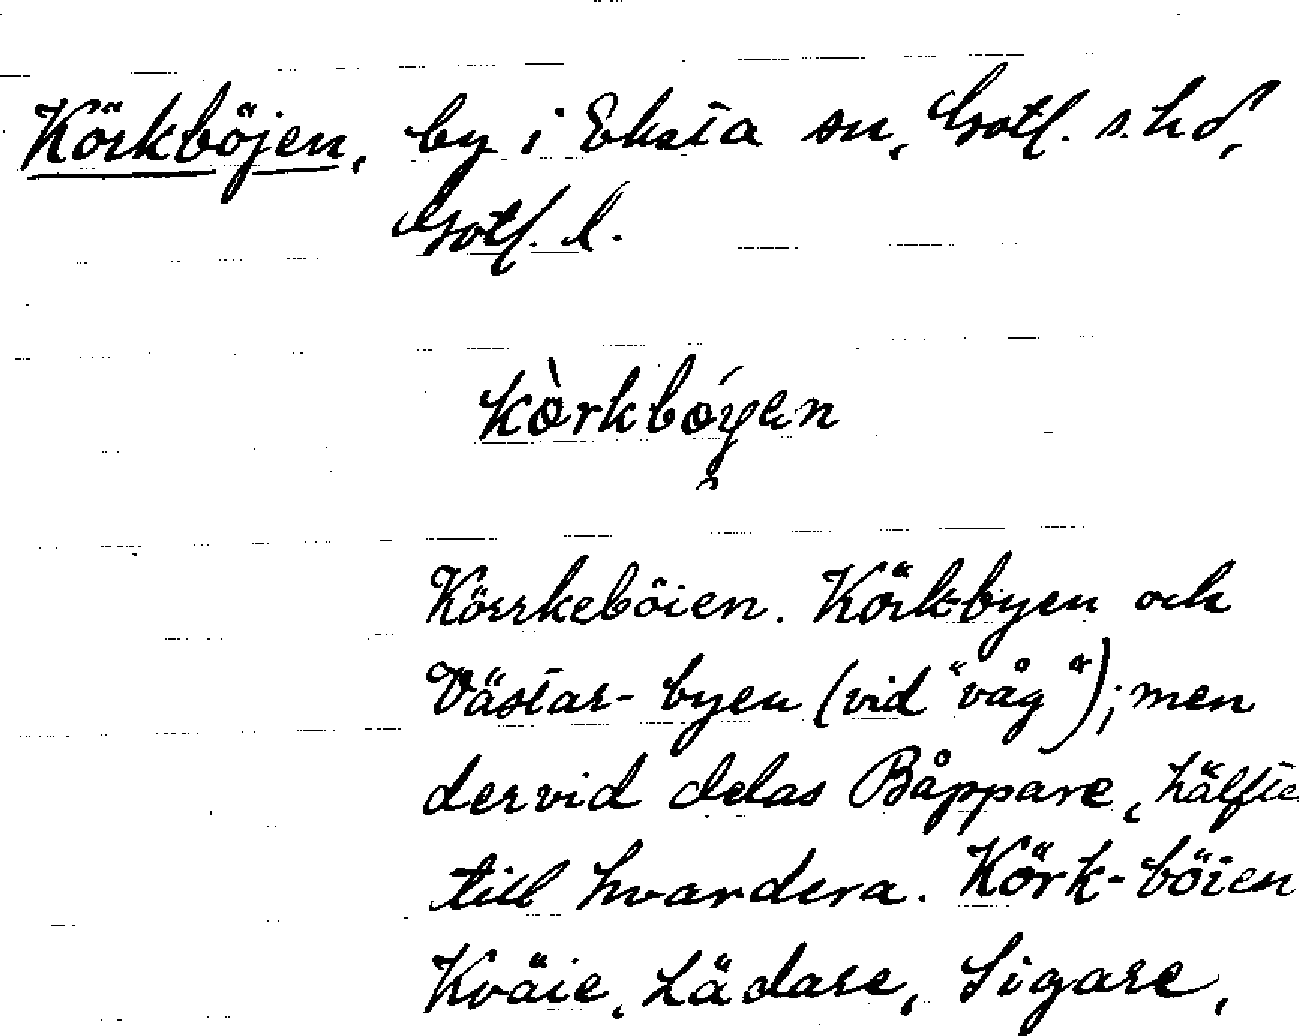 Körkböjen, by i Eksta sn, Gotl. s. hd,
Gotl. l.
kòrkbóyen
Körrkeböien. Körk-byen och
Västar-byen (vid "våg"); men
dervid delas Båppare, hälften
till hvardera. Körk-böien
Kväie, Lädare, Sigare,